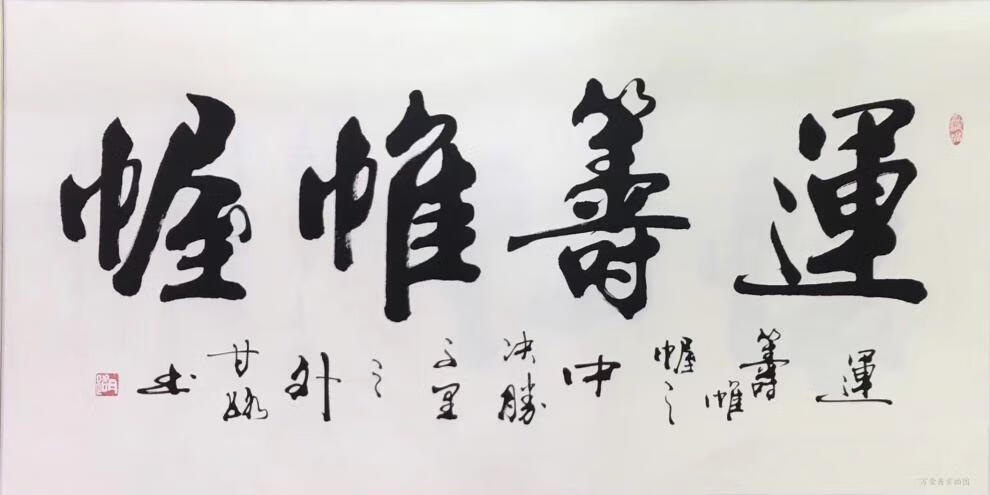 運籌帷幄
運籌帷幄之中决勝千里之外
甘露书